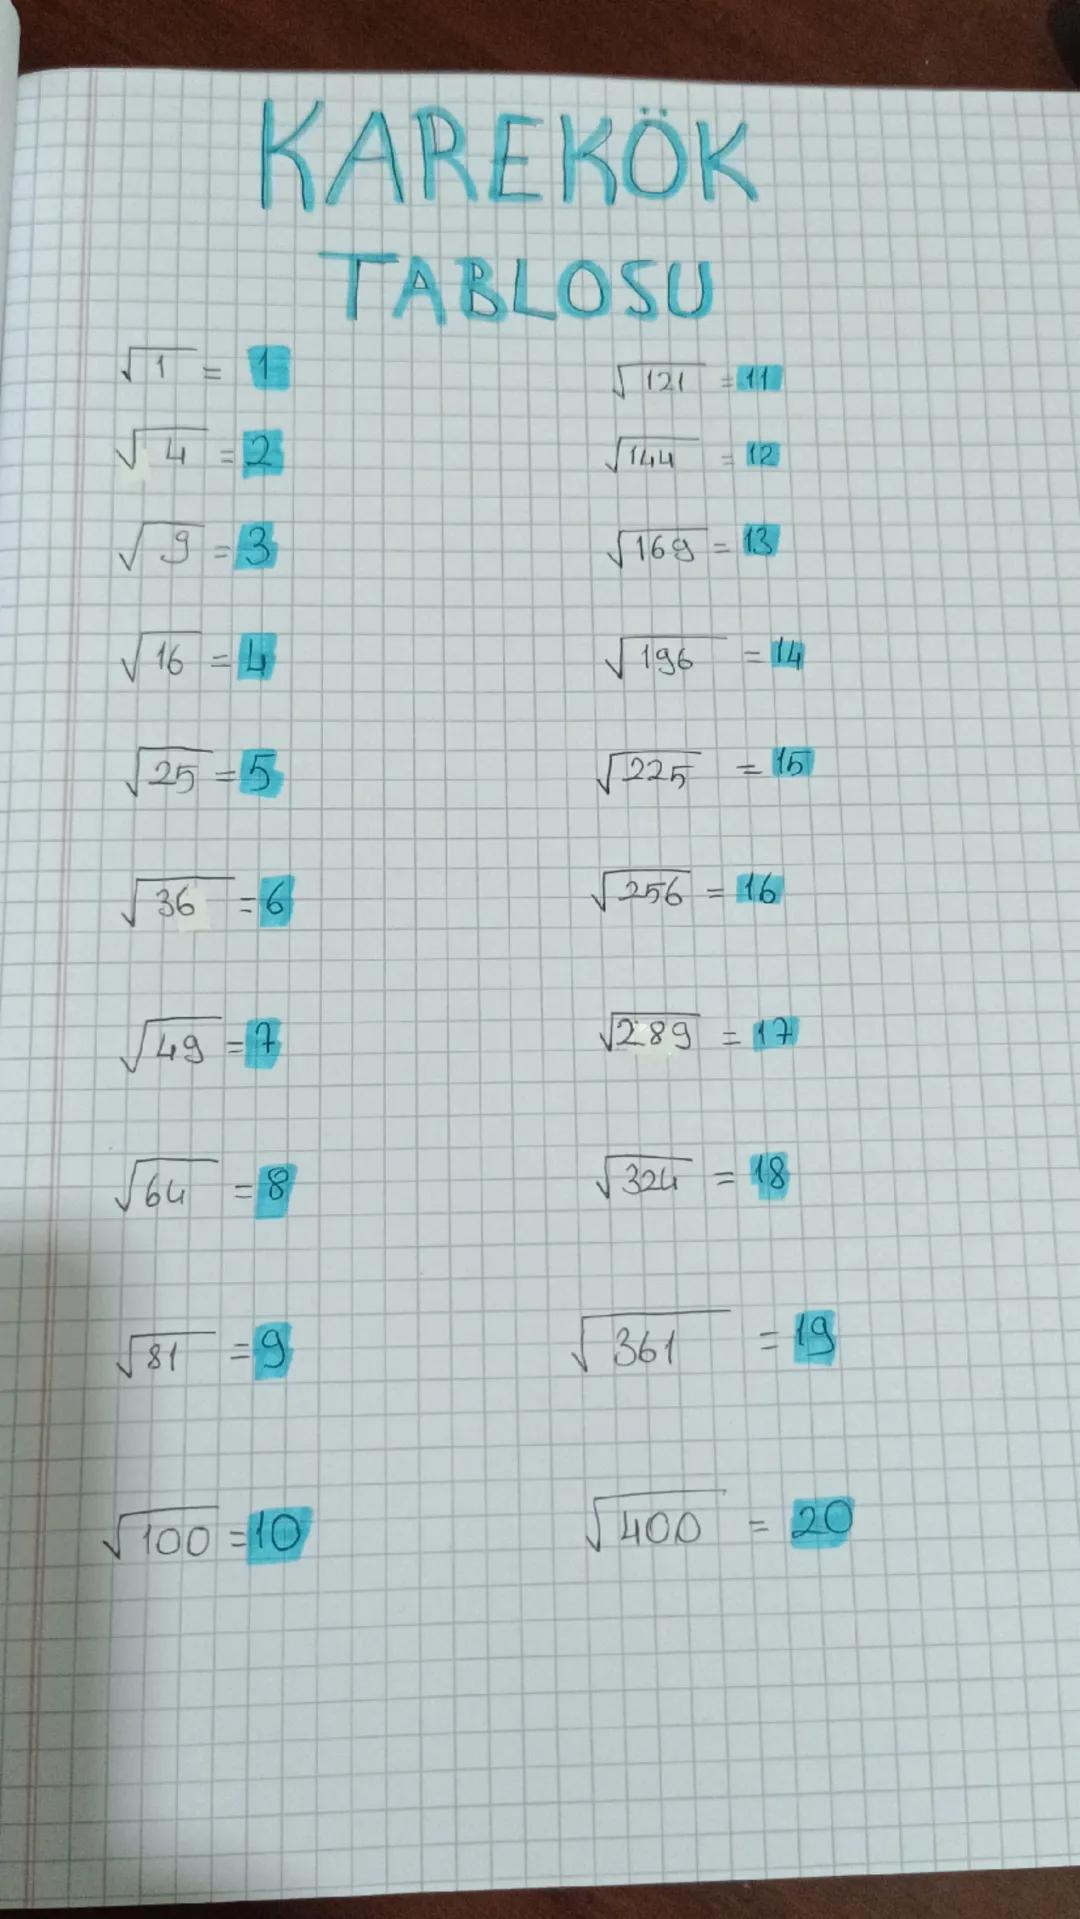 KAREKÖK
TABLOSU
√1 = 1
√4 = 2
√9 = 3
√16 = 4
√25 = 5
√36 = 6
√49 = 7
√64 = 8
√81 = 9
√100 = 10
√121 = 11
√144 = 12
√169 = 13
√196 = 14
√225 = 15
√256 = 16
√289 = 17
√324 = 18
√361 = 19
√400 = 20